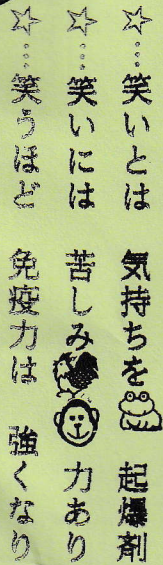 ☆…笑いとは 気持ちを 起爆剤
☆…笑いには 苦しみ 力あり
☆…笑うほど 免疫力は 強くなり